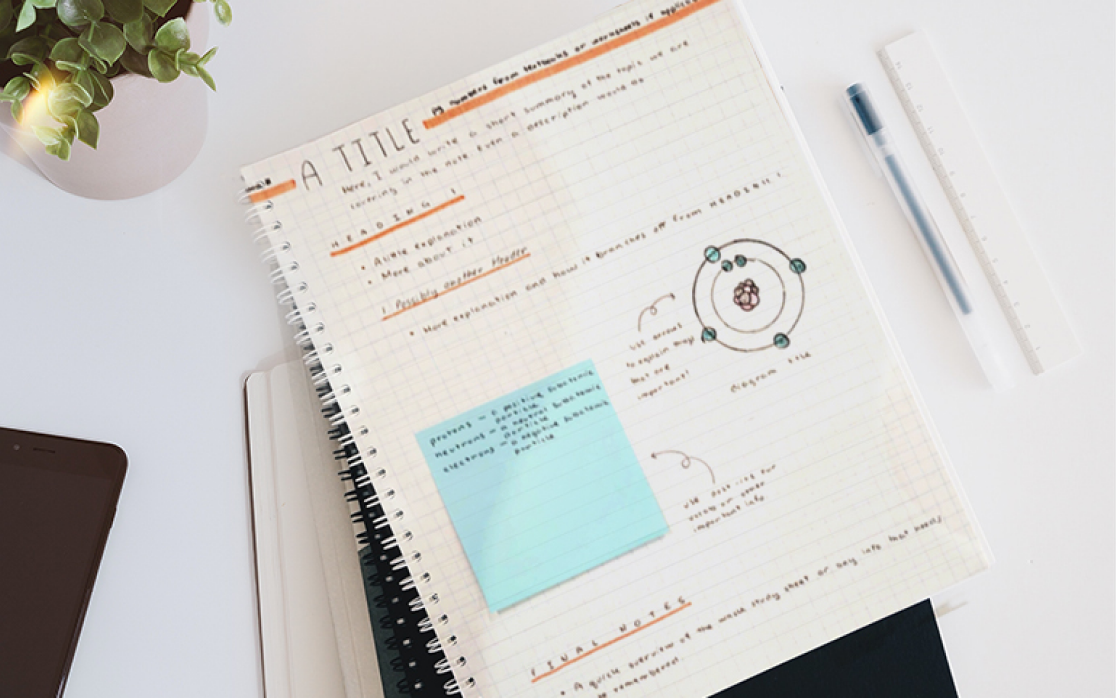 pg numbers from textbooks or worksheets if applica
A TITLE
Here, I would write a short summary of the topic we are
covering in the note Even a description would do
HEADING 1
• A little explanation
• More about it
1. Possibly another Header
• More explanation and how it branches off from HEADER 1.
use arrows
to explain
that are
important!
diagram title
protons - a positive subatomic
particle
neutrons - a neutral subatomic
particle
electrons - a negative subatomic
particle
use post-its for
or other
important info
FINAL NOTES
• A quick overview of the whole study sheet or key info that needs
be remembered.